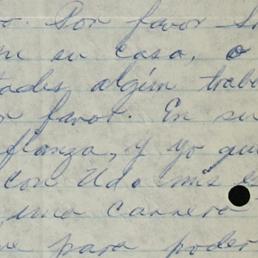 Por favor
en su casa, o
algún trab
favor. En su
fianza, y yo qui
con Uds mis
una carrera
para poder